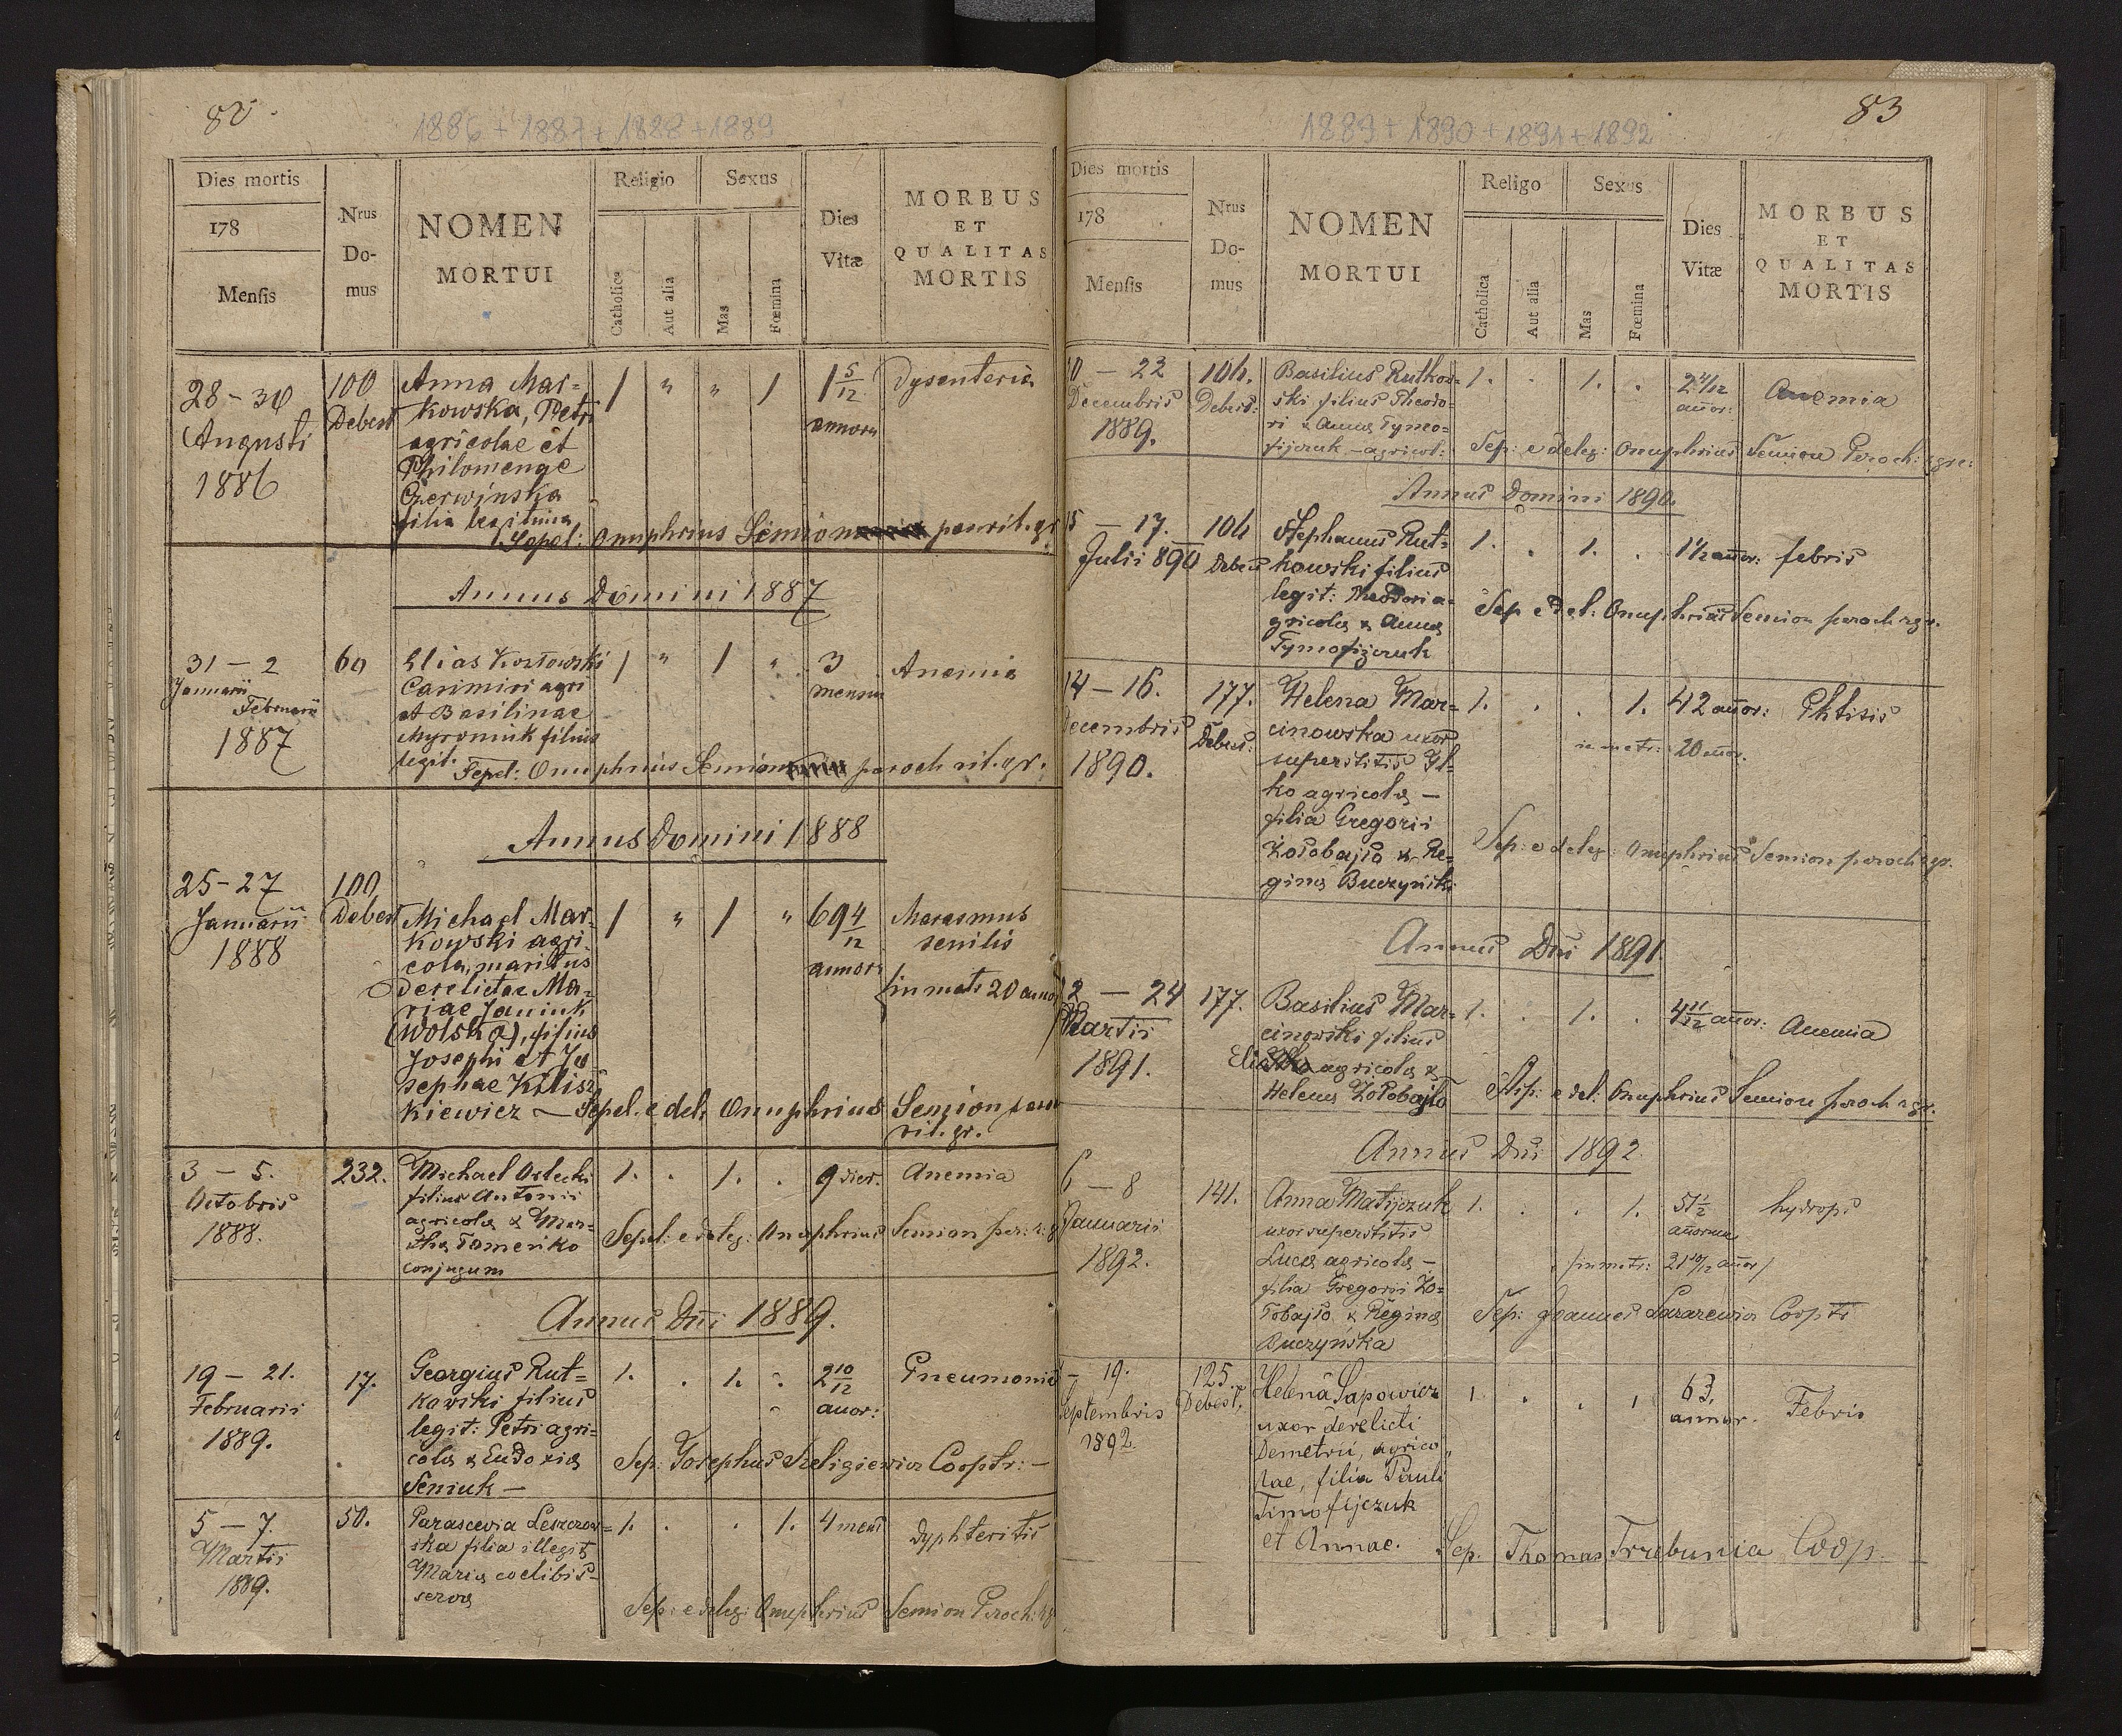 82.
1886 + 1887 + 1888 + 1889
Dies mortis
178
Mensis
Nrus Do-mus
NOMEN MORTUI
Religio
Catholica
Aut alia
Sexus
Mas
Fœmina
Dies Vitæ
MORBUS ET QUALITAS MORTIS
28 - 30 Augusti 1886
100 Debesł
Anna Mar=
kowska, Petri
agricolae et
Philomenae
Czerwinska
filia legitima
1 " " 1
1 5/12 annor
Dysenteria
Sepel: Onuphrius Semion par rit. gr.
Annus Domini 1887
31 - 2
Januarii
Februarii
1887
60
Elias Kozłowski
Casimiri agri
et Basilinae
Myroniuk filius
legit.
1 " 1 "
3 mensiu
Anemia
Sepel: Onuphrius Semion paroch rit. gr.
Annus Domini 1888
25 - 27
Januarii
1888
100
Debesł
Michael Mar-
kowski agri-
cola, maritus
derelictae Ma-
riae Janiuk
(Wolska), filius
Josephi et Jo
sephae Kilisz
kiewicz
1 " 1 "
69 4/12 annor
Marasmus
senilis
(in matr 20 annor
Sepel. e del. Onuphrius Semion paro
rit. gr.
3 - 5.
Octobris
1888.
232.
Michael Osłecki
filius Antonii
agricola & Mar=
tha Tomenko
conjugum
1. . 1. .
9 dier.
Anemia
Sepel: e deleg: Onuphrius Semion par: r. g
Annus Dni 1889.
19 - 21.
Februarii
1889.
17.
Georgius Rut=
kowski filius
legit: Petri agri=
cola & Eudoxia
Seniuk —
1. . 1. .
2 10/12
anor:
Pneumonia
Sep: Josephus Szeligiewicz Cooptr: —
5 - 7.
Martii
1889.
50.
Parascevia Leszczow=
ska filia illegit
Maria coelibis-
serva
1. . . 1.
4 mens
Dyphteritis
Sep: e deleg: Onuphrius Semion Paroch: rg
83
1889 + 1890 + 1891 + 1892
Dies mortis
178
Mensis
Nrus Do-mus
NOMEN MORTUI
Religo
Catholica
Aut alia
Sexus
Mas
Fœmina
Dies Vitæ
MORBUS ET QUALITAS MORTIS
0 - 22
Decembris
1889.
104.
Debesł:
Basilius Rutkow=
ski filius Theodo=
ri & Anna Tymo=
fijczuk - agricol:
1. . 1. .
annor:
Anemia
Sep: e deleg: Onuphrius Semion Paroch: rgr:
Annus Domini 1890.
15 - 17.
Julii 890
104
Debesł
Stephanus Rut=
kowski filius
legit: Theodori a=
gricola & Anna
Tymofijczuk
1. . 1. .
1 1/2 annor:
febris
Sep e del: Onuphrius Semion paroch rgr.
14 - 16.
Decembris
1890.
177.
Debesł:
Helena Mar=
cinowska uxor
superstitis Il=
ko agricola —
filia Gregorii
Zołobajło & Re=
gina Buczyński
1. . . 1.
42 annor:
Phtisis
in matr: 20 annor.
Sep: e deleg: Onuphrius Semion paroch rgr.
Annus Dni 1891.
2 - 24
Martii
1891.
177.
Basilius Mar=
cinowski filius
Elia agricola &
Helena Zołobajło
1. . 1. .
4 11/12 annor:
Anemia
Sep: e del: Onuphrius Semion paroch rgr.
Annus Dni 1892.
6 - 8
Januarii
1892.
141.
Anna Matijczuk
uxor superstitis
Luca agricola —
filia Gregorii Zo=
łobajło & Regina
Buczyńska
1. . . 1.
51 1/2
annorum
hydrops
/in matr: 21 10/12 annor/
Sep: Joannes Lazarewicz Cooptr
- 19.
Septembris
1892.
125.
Debesł.
Helena Sapowicz
uxor derelicti
Demetrii, agrico
lae, filia Pauli
Timofijczuk
et Annae.
1. . . 1
63.
annor.
Febris
Sep. Thomas Trzebunia Coop.